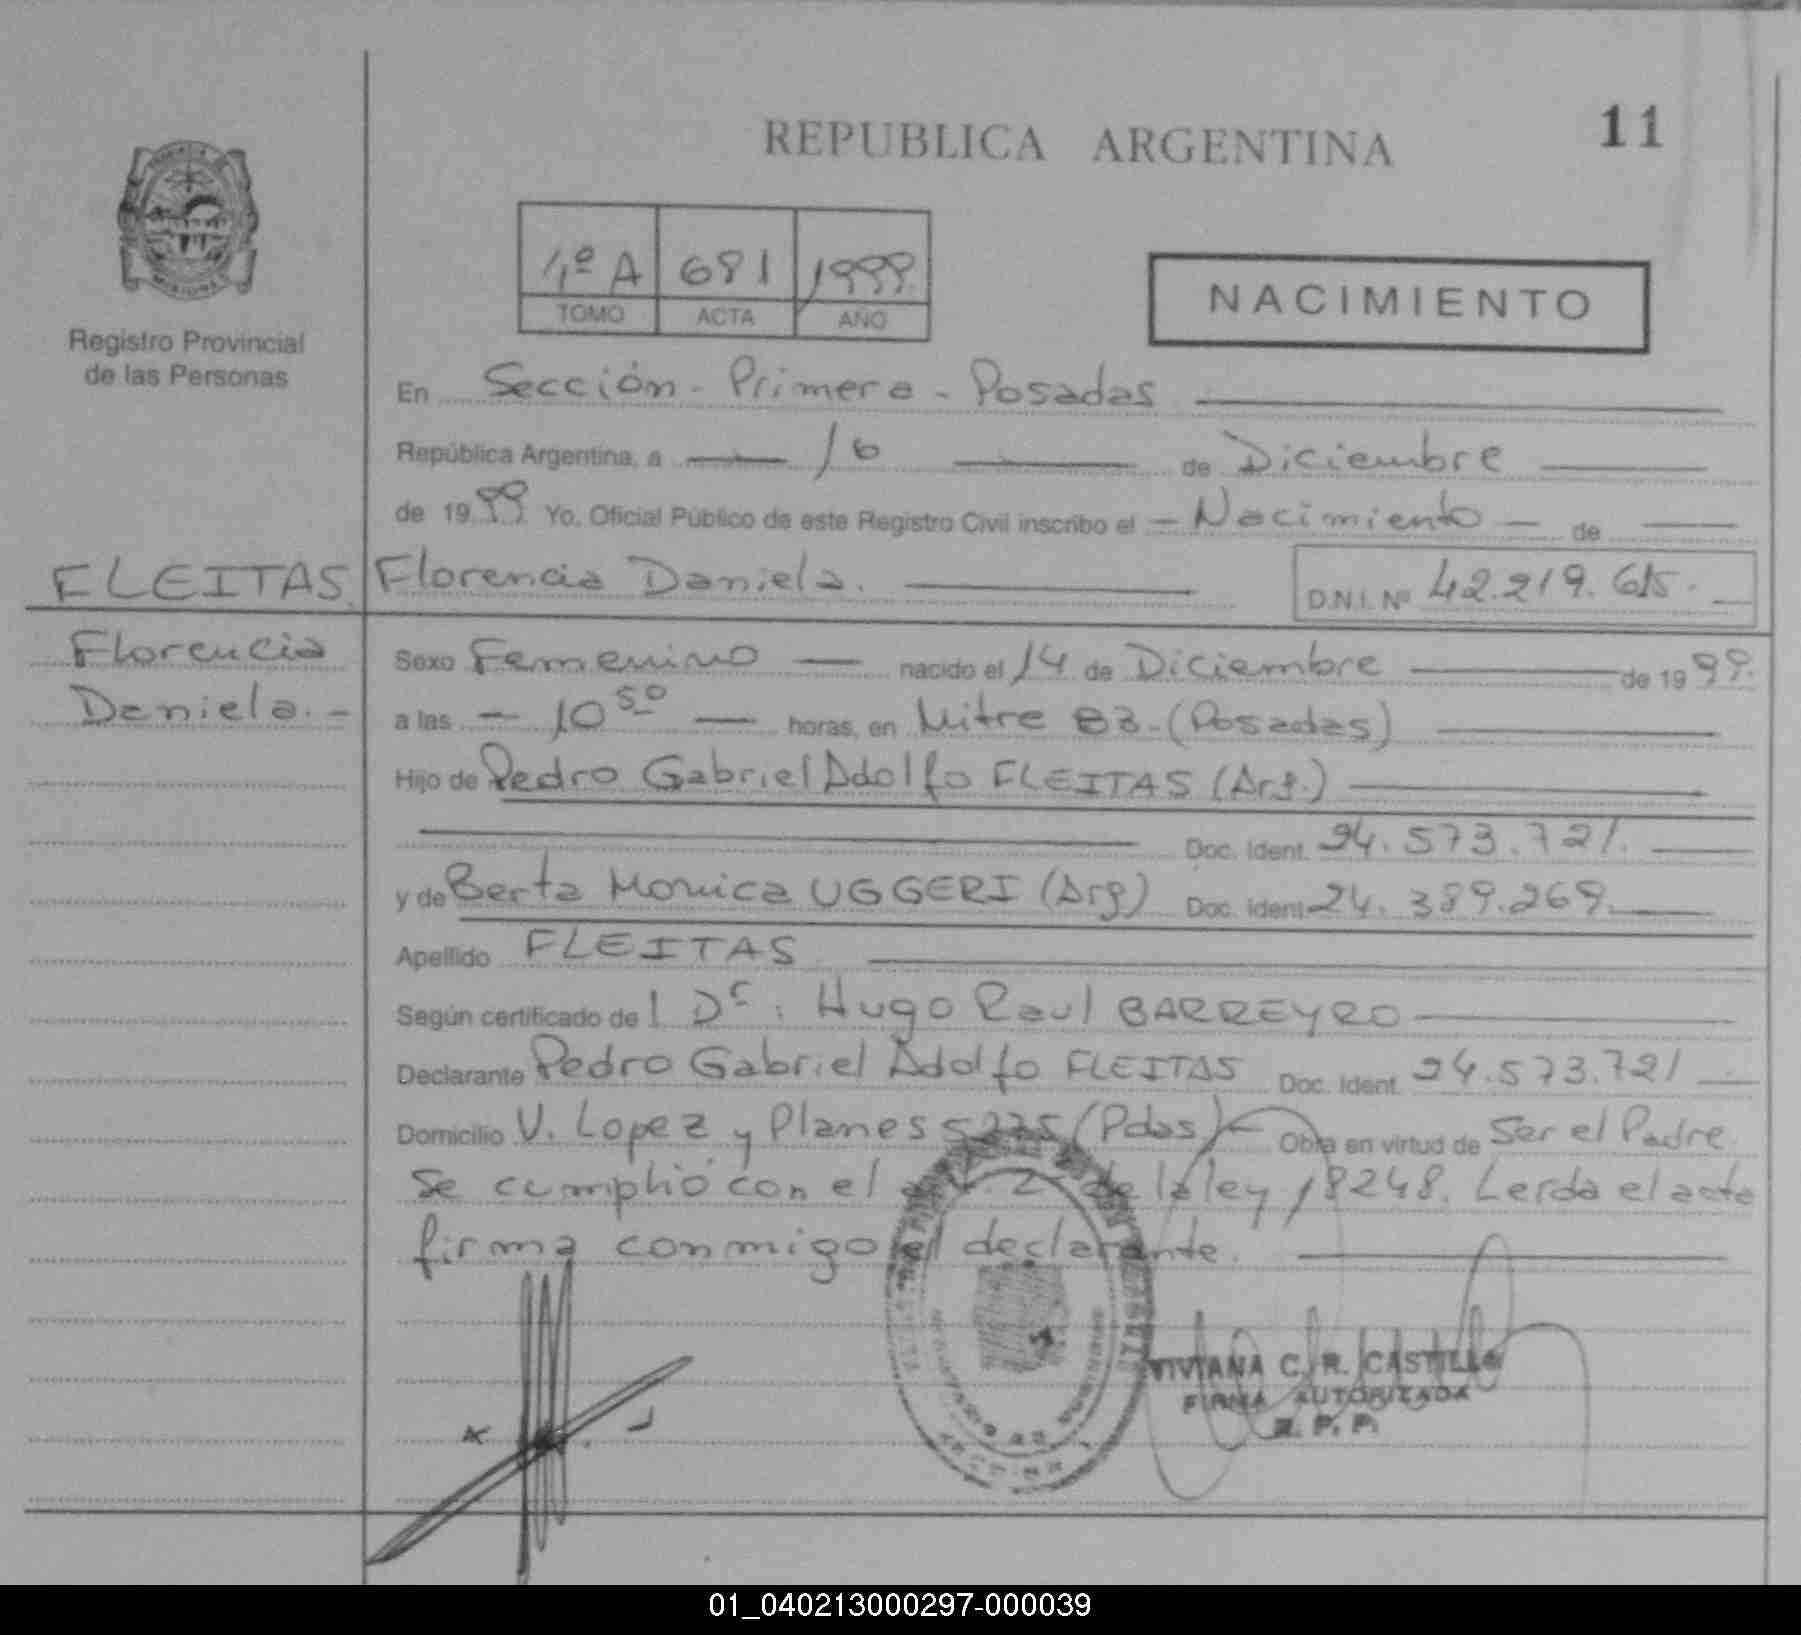 REPUBLICA ARGENTINA
11
4º A 681 1999
TOMO ACTA AÑO
NACIMIENTO
Registro Provincial
de las Personas
En Sección - Primera - Posadas
República Argentina, a 16 de Diciembre
de 1999 Yo, Oficial Público de este Registro Civil inscribo el - Nacimiento - de
FLEITAS Florencia Daniela. D.N.I. Nº 42.219.615.
Florencia
Daniela. -
Sexo Femenino nacido el 14 de Diciembre de 1999.
a las - 10 50 - horas, en Mitre 83 - (Posadas)
Hijo de Pedro Gabriel Adolfo FLEITAS (Arg.)
Doc. Ident. 24.573.721.
y de Berta Monica UGGERI (Arg) Doc. Ident. 24.389.269.
Apellido FLEITAS
Según certificado de l Dr. Hugo Raul BARREYRO
Declarante Pedro Gabriel Adolfo FLEITAS Doc. Ident. 24.573.721
Domicilio V. Lopez y Planes 5275 (Pdas) - Obra en virtud de Ser el Padre
Se cumplió con el art. 2º de la ley 18248. Leída el acta
firma conmigo el declarante.
VIVIANA C. R. CASTILLO
FIRMA AUTORIZADA
R. P. P.
01_040213000297-000039